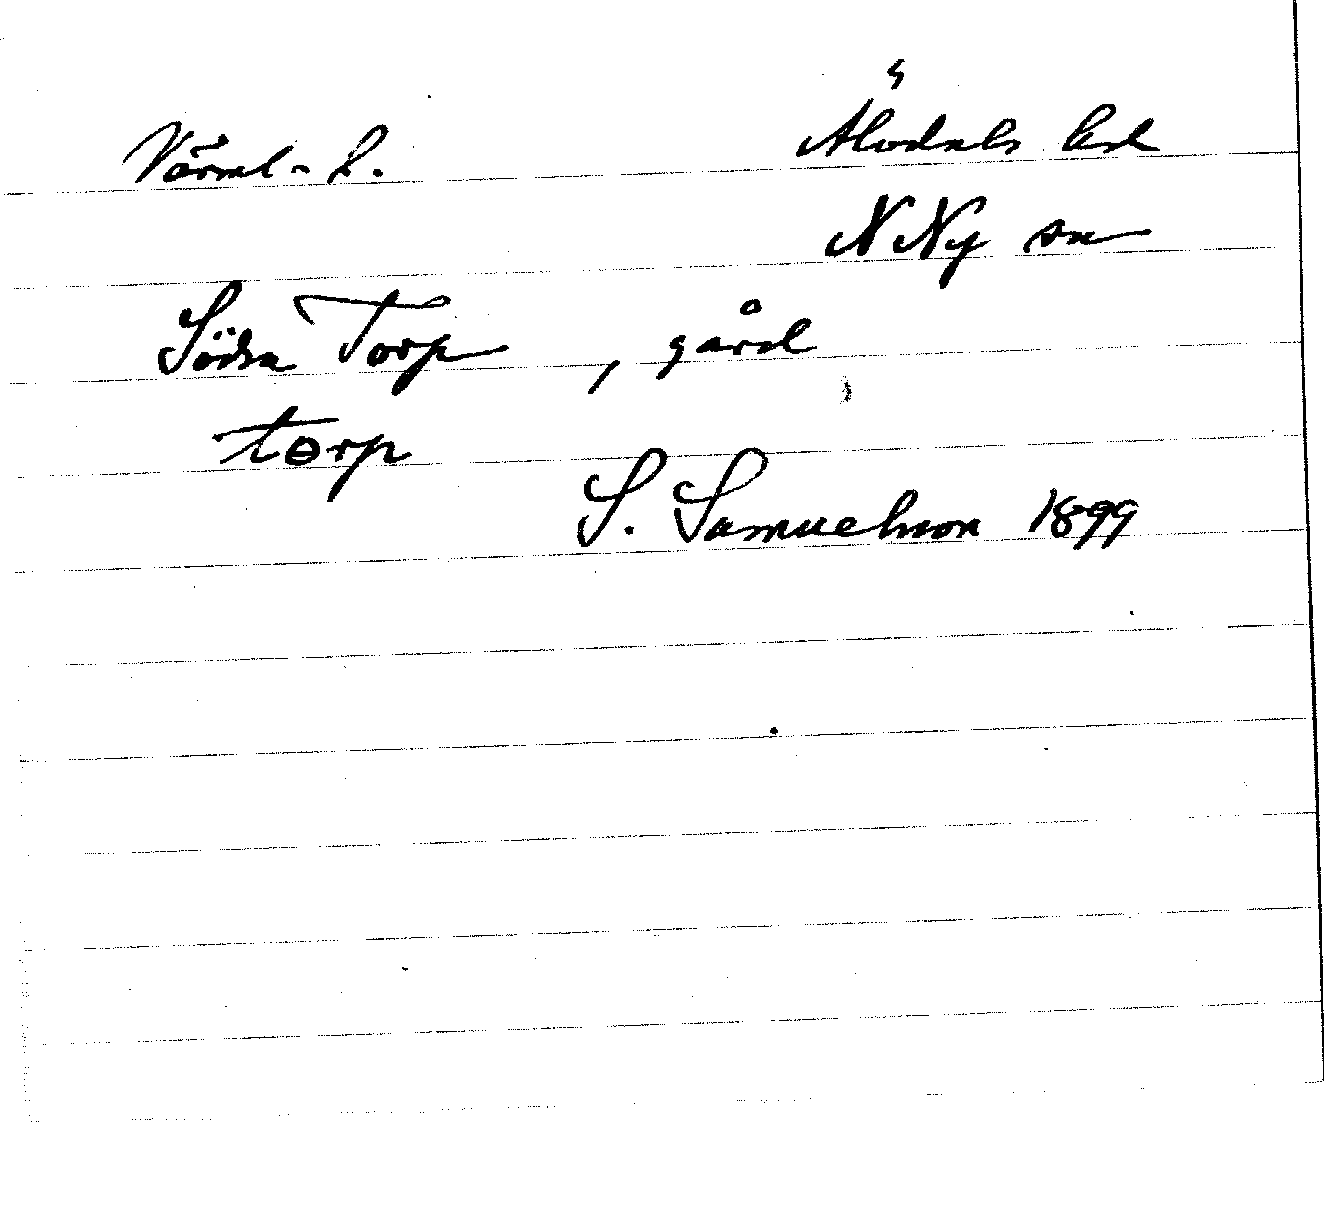 Värml. L. Älvdals hd
N Ny sn
Södra Torp, gård
torp
S. Samuelsson 1899